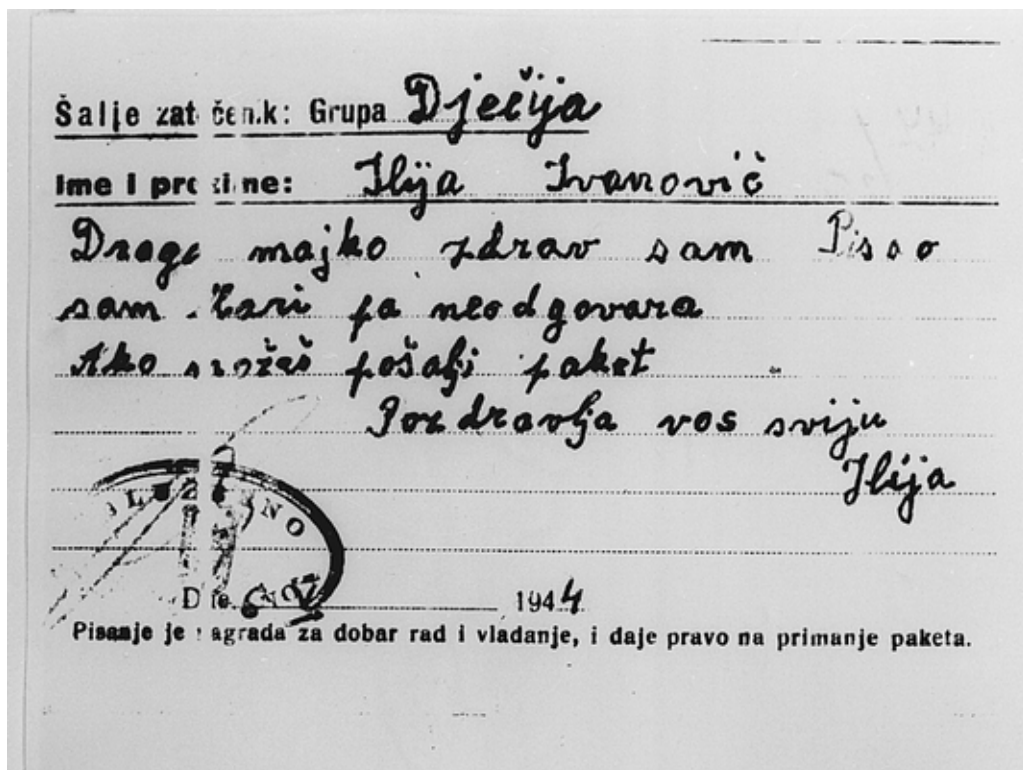 Šalje zatočenik: Grupa Dječija
Ime i prezime: Ilija Ivanović
Draga majko zdrav sam Pisao
sam pa neodgovara
Ako možeš pošalji paket
Pozdravlja vas sviju
Ilija
Dne 1944
Pisanje je nagrada za dobar rad i vladanje, i daje pravo na primanje paketa.